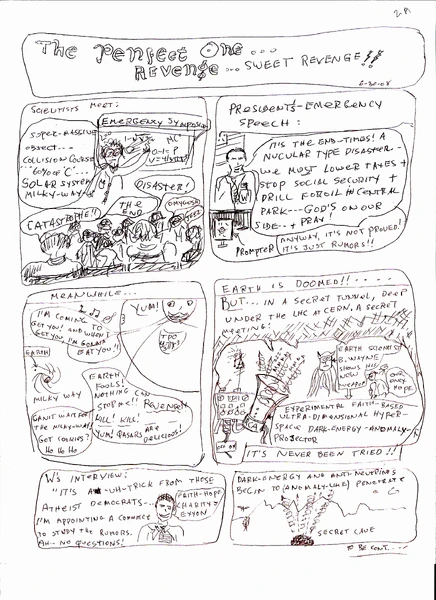 2-P1
The Perfect One...
Revenge... Sweet Revenge!!
6-30-08
Scientists Meet:
Emergency Symposium
Super-Massive
Object...
Collision Course
60% of 'C'...
Solar System
Milky-Way
Disaster!
The
End
OMyGosh
Catastrophe!!
Presidents-Emergency
Speech:
It's the End-Times! A
Nucular Type Disaster-
We Most Lower Taxes +
Stop Social Security +
Drill for Oil in Central
Park---God's on our
Side-+ Pray!
Prompter
Anyway, it's not proved!
It's just rumors!!
Meanwhile...
Yum!
I'm coming to
get you! and when I
get you, I'm gonna
eat you!!
Earth
Milky Way
Can't wait for
the Milky-Way!
Got cookies?
Ho Ho Ho
Earth
Fools!
Nothing can
stop me!!
Revenge!!
Kill! Kill!
Yum! Qasars are
delicious!
Earth is Doomed!!.....
But... in a secret tunnel, deep
under the LHC at CERN, a secret
meeting!
Earth Scientist
B. Wayne,
shows his
new
weapon
Our
only
hope
Experimental Faith-Based
Ultra-Dimensional Hyper-
Space Dark-Energy-Anomaly-
Projector
It's never been tried!!
W's Interview:
"It's a -uh-trick from those
Atheist Democrats-...
I'm appointing a committee
to study the rumors.
Ah-- no questions!
Faith-Hope
Charity +
Exxon
Dark-Energy and Anti-Neutrinos
begin to (anomaly-like) penetrate
Secret Cave
To be cont....